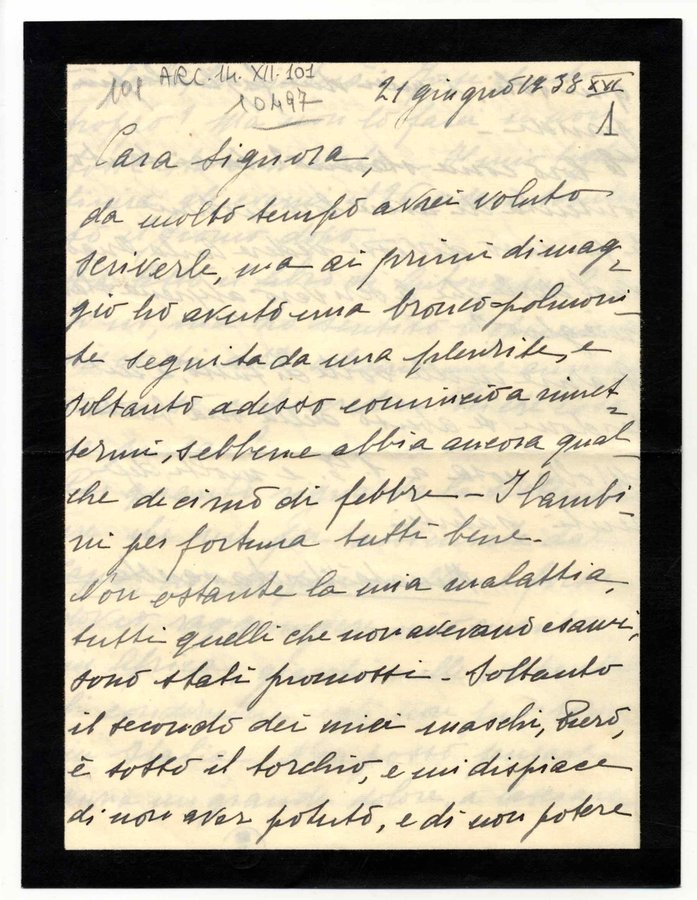 101 ARC. 14. XII. 101
10497
21 giugno 1938 XVI
1
Cara Signora,
da molto tempo avrei voluto
scriverle, ma ai primi di mag-
gio ho avuto una bronco-polmoni-
te seguita da una pleurite, e
soltanto adesso comincio a rimet-
termi, sebbene abbia ancora qual-
che decimo di febbre - I bambi-
ni per fortuna tutti bene.
Non ostante la mia malattia,
tutti quelli che non avevano esami,
sono stati promossi - Soltanto
il secondo dei miei maschi, Piero,
è sotto il torchio, e mi dispiace
di non aver potuto, e di non potere